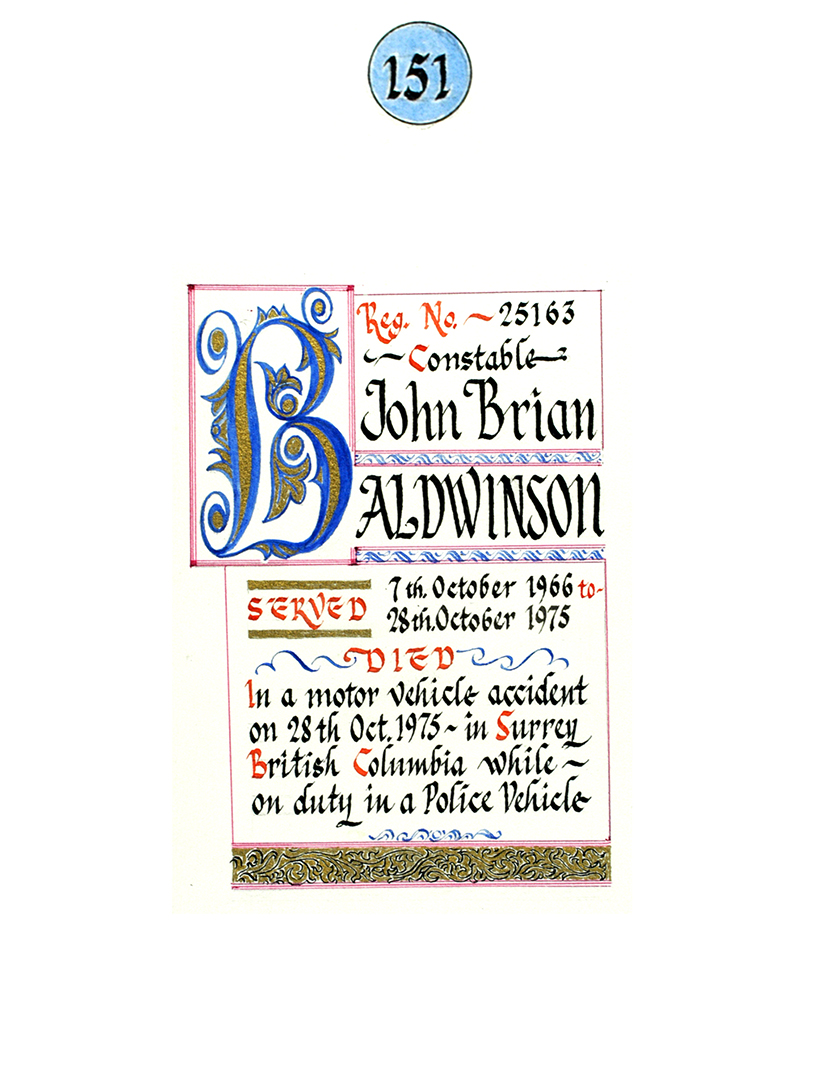 151
Reg. No. ~ 25163
~ Constable
John Brian
BALDWINSON
SERVED
7th. October 1966 to-
28th. October 1975
DIED
In a motor vehicle accident
on 28th Oct. 1975 ~ in Surrey
British Columbia while ~
on duty in a Police Vehicle